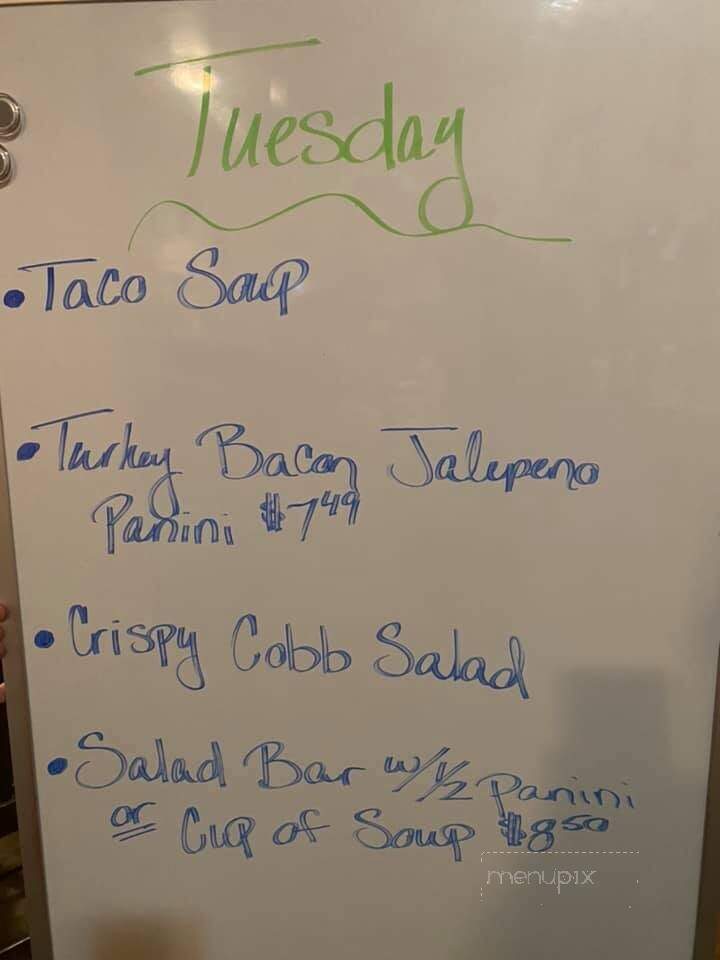 Tuesday
• Taco Soup
• Turkey Bacon Jalepeno
Panini $7.49
• Crispy Cobb Salad
• Salad Bar w/ 1/2 Panini
or Cup of Soup $8.50
menupix